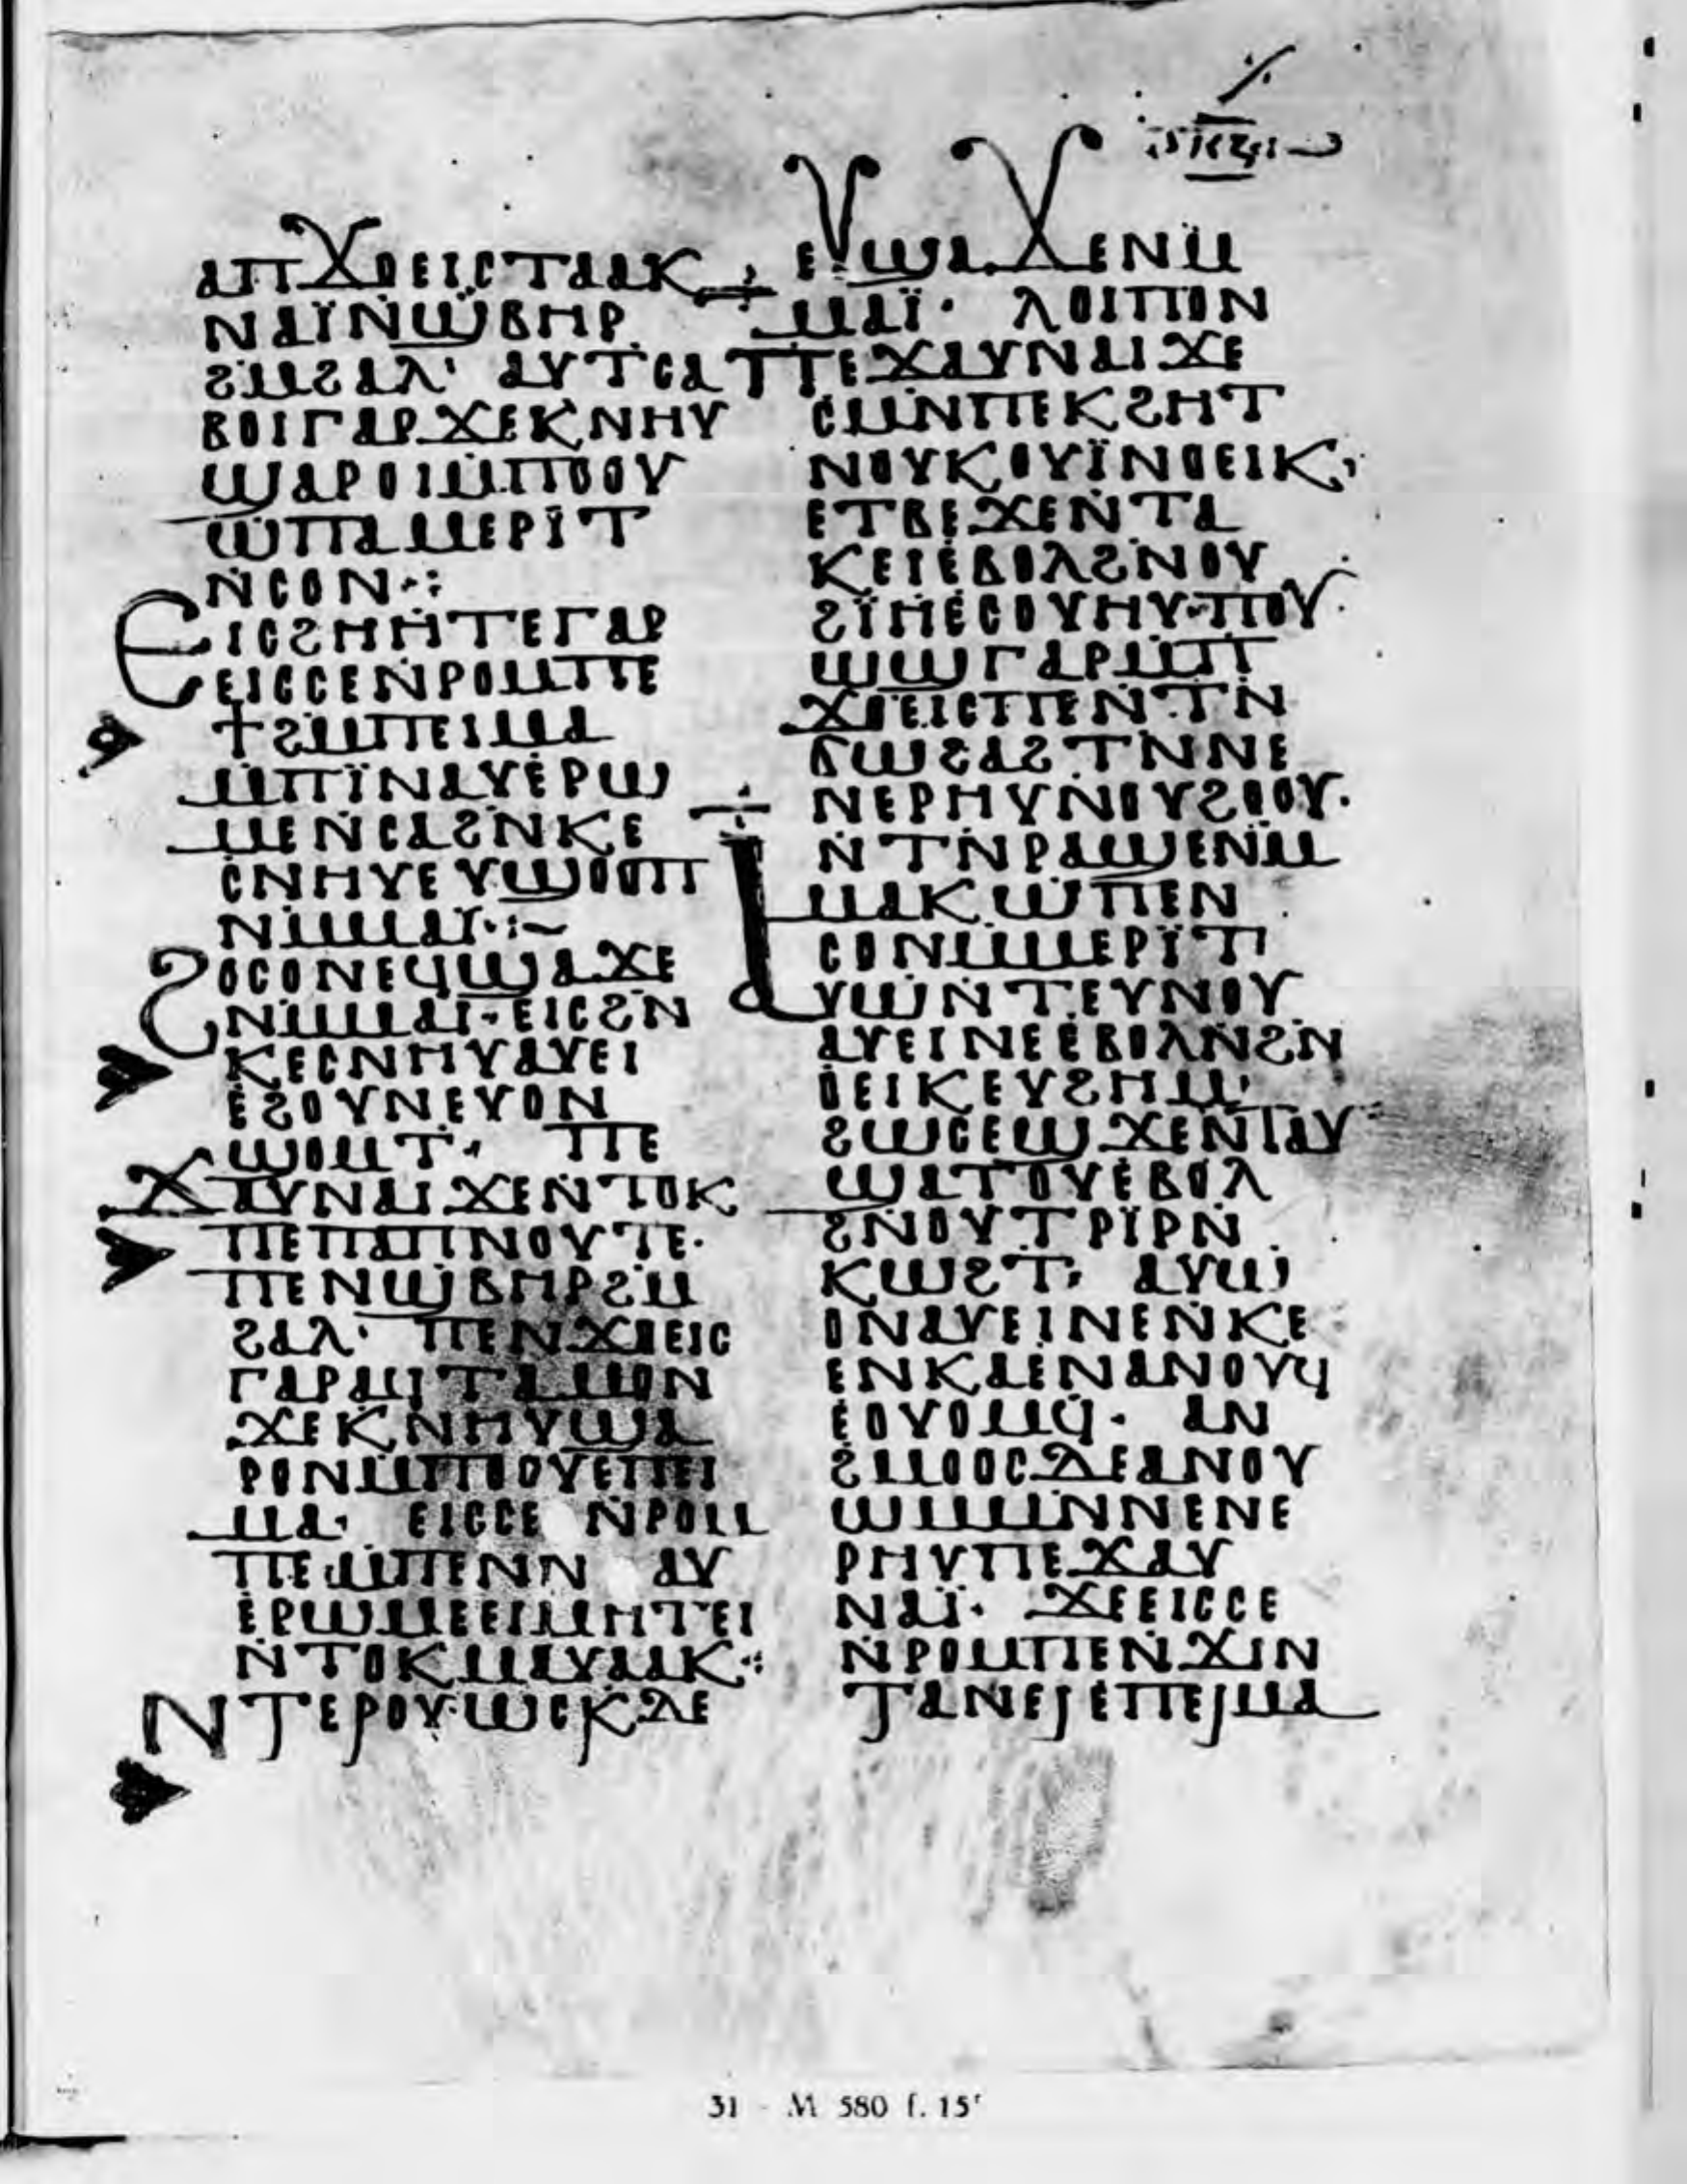 ⲁⲡϫⲟⲉⲓⲥⲧⲁⲁⲕ
ⲛⲁⲓ̈ⲛϣⲃⲏⲣ
ϩⲙϩⲁⲗ· ⲁⲩⲧⲥⲁ
ⲃⲟⲓⲅⲁⲣϫⲉⲕⲛⲏⲩ
ϣⲁⲣⲟⲓⲙ̇ⲡⲟⲟⲩ
ⲱ̇ⲡⲁⲙⲉⲣⲓ̈ⲧ
ⲛ̇ⲥⲟⲛ·:
Ⲉⲓⲥϩⲏⲏⲧⲉⲅⲁⲣ
ⲉⲓⲥⲥⲉⲛ̇ⲣⲟⲙⲡⲉ
ϯϩⲙⲡⲉⲓⲙⲁ
ⲙⲡⲓ̈ⲛⲁⲩⲉ̇ⲣⲱ
ⲙⲉⲛ̇ⲥⲁϩⲛⲕⲉ
ⲥⲛⲏⲩⲉⲩϣⲟⲟⲡ
ⲛⲙ̇ⲙⲁⲓ̈·:~
Ϩⲟⲥⲟⲛⲉϥϣⲁϫⲉ
ⲛⲙ̇ⲙⲁⲓ̈·ⲉⲓⲥϩⲛ
ⲕⲉⲥⲛⲏⲩⲁⲩⲉⲓ
ⲉ̇ϩⲟⲩⲛⲉⲩⲟⲛ
ϣⲟⲙⲧ· ⲡⲉ
ϫⲁⲩⲛⲁⲓϫⲉⲛ̇ⲧⲟⲕ
ⲡⲉⲡⲁⲡⲛⲟⲩⲧⲉ·
ⲡⲉⲛϣⲃⲏⲣϩⲙ
ϩⲁⲗ· ⲡⲉⲛϫⲟⲉⲓⲥ
ⲅⲁⲣⲁϥⲧⲁⲙⲟⲛ
ϫⲉⲕⲛⲏⲩϣⲁ
ⲣⲟⲛⲙ̇ⲡⲟⲟⲩⲉⲡⲉⲓ
ⲙⲁ· ⲉⲓⲥⲥⲉ ⲛ̇ⲣⲟⲙ
ⲡⲉⲙ̇ⲡⲉⲛⲛ ⲁⲩ
ⲉ̇ⲣⲱⲙⲉⲉⲓⲙⲏⲧⲉⲓ
ⲛ̇ⲧⲟⲕⲙⲁⲩⲁⲁⲕ·:
Ⲛⲧⲉⲣⲟⲩⲱⲥⲕⲇⲉ
ⲉⲩϣⲁϫⲉⲛⲙ̇
ⲙⲁⲓ̈· ⲗⲟⲓⲡⲟⲛ
ⲡⲉϫⲁⲩⲛⲁⲓϫⲉ
ⲥⲙ̇ⲛⲡⲉⲕϩⲏⲧ
ⲛⲟⲩⲕⲟⲩⲓ̈ⲛⲟⲉⲓⲕ·
ⲉⲧⲃⲉϫⲉⲛ̇ⲧⲁ
ⲕⲉⲓⲉ̇ⲃⲟⲗϩⲛⲟⲩ
ϩⲓ̈ⲏⲉ̇ⲥⲟⲩⲏⲩ·ⲡⲟⲩ
ⲱϣⲅⲁⲣⲙ̇ⲡ
ϫⲟⲉⲓⲥⲡⲉⲛ̇ⲧⲛ
ϭⲱϩⲁϩⲧⲛⲛⲉ
ⲛⲉⲣⲏⲩⲛⲟⲩϩⲟⲟⲩ·
ⲛ̇ⲧⲛ̇ⲣⲁϣⲉⲛⲙ̇
ⲙⲁⲕⲱ̇ⲡⲉⲛ
ⲥⲟⲛⲙ̇ⲙⲉⲣⲓ̈ⲧ
ⲁⲩⲱⲛ̇ⲧⲉⲩⲛⲟⲩ
ⲁⲩⲉⲓⲛⲉⲉ̇ⲃⲟⲗⲛ̇ϩⲛ
ⲟⲉⲓⲕⲉⲩϩⲏⲙ·
ϩⲱⲥⲉϣϫⲉⲛⲧⲁⲩ
ϣⲁⲧⲟⲩⲉ̇ⲃⲟⲗ
ϩⲛⲟⲩⲧⲣⲓ̈ⲣⲛ̇
ⲕⲱϩⲧ· ⲁⲩⲱ
ⲟⲛⲁⲩⲉⲓⲛⲉⲛ̇ⲕⲉ
ⲉⲛⲕⲁⲉⲛⲁⲛⲟⲩϥ
ⲉ̇ⲟⲩⲟⲙϥ· ⲁⲛ
ϩⲙⲟⲟⲥⲇⲉⲁⲛⲟⲩ
ⲱⲙⲙ̇ⲛⲛⲉⲛⲉ
ⲣⲏⲩⲡⲉϫⲁⲩ
ⲛⲁⲓ̈· ϫⲉⲉⲓⲥⲥⲉ
ⲛ̇ⲣⲟⲙⲡⲉⲛϫⲓⲛ
ⲧⲁⲛⲉⲓⲉ̇ⲡⲉⲓⲙⲁ
31 - M 580 f. 15ʳ